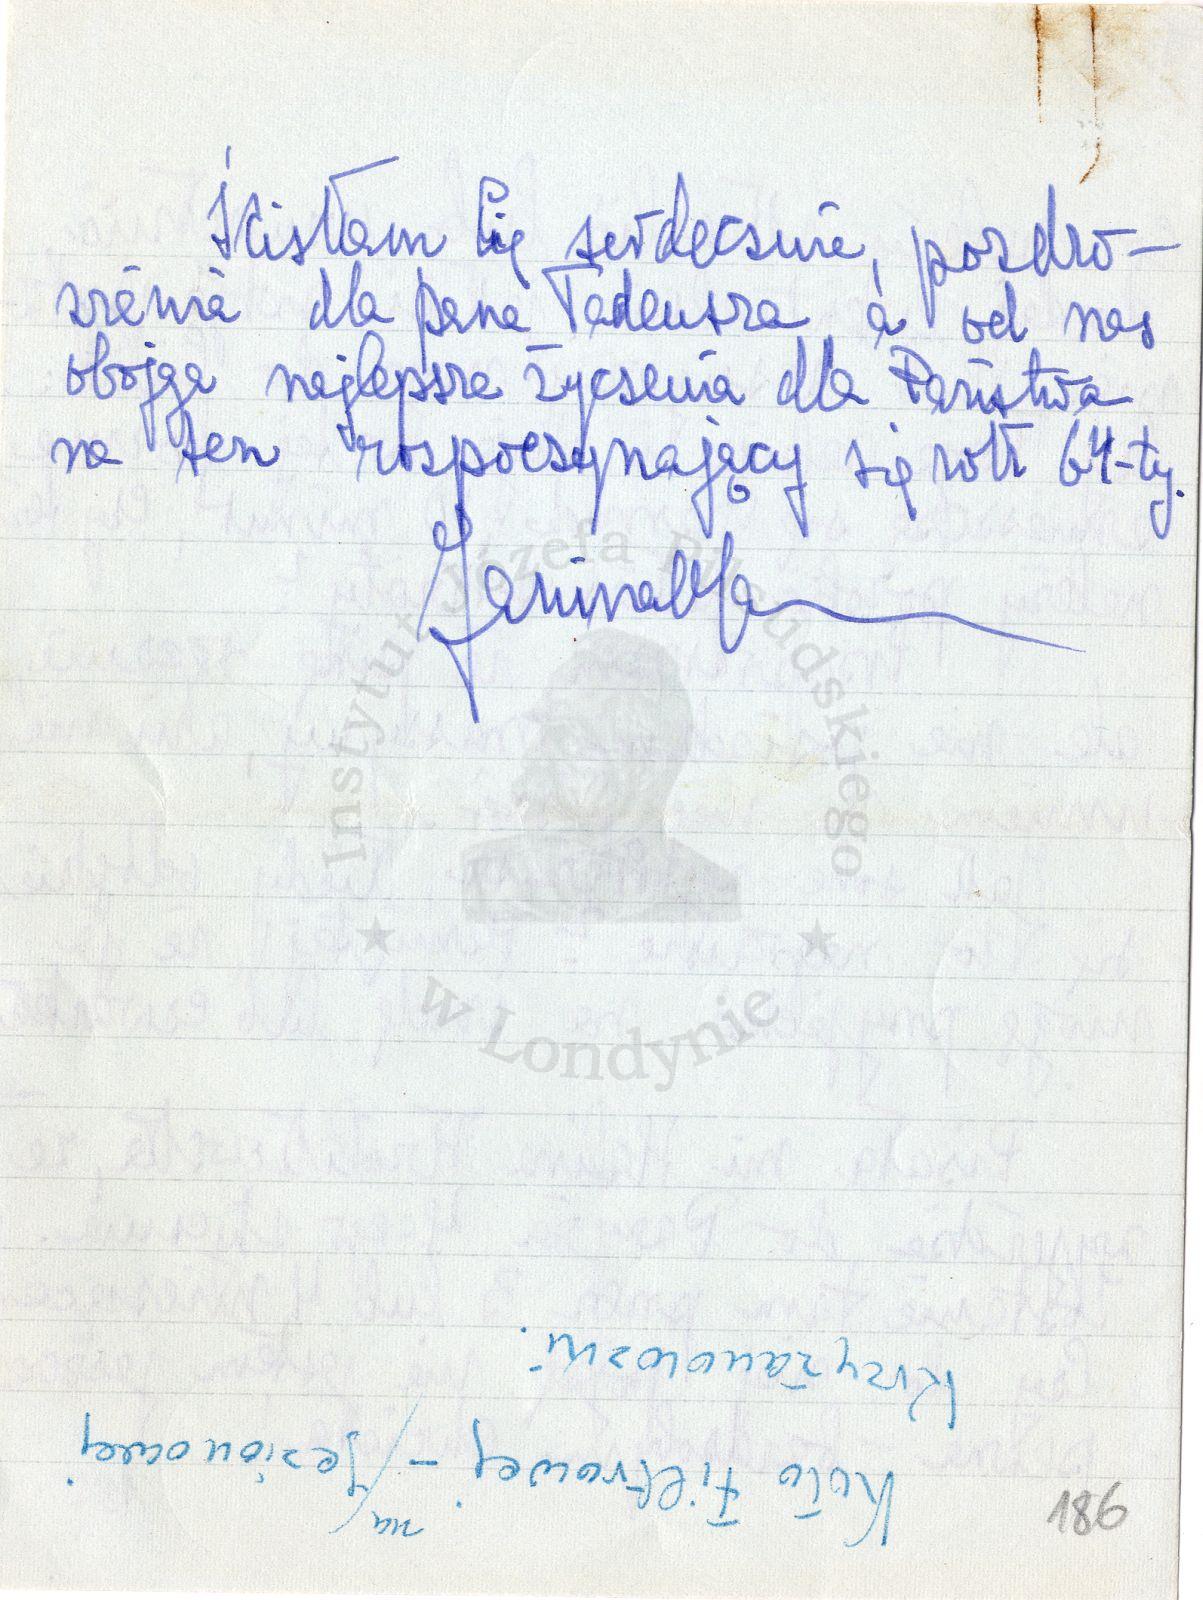 Ściskam Cię serdecznie, pozdro-
wienia dla pana Tadeusza a od nas
obojga najlepsze życzenia dla Państwa
na ten rozpoczynający się rok 64-ty.
Janina
Instytut Józefa Piłsudskiego
w Londynie
Koło Filtrowej – na Jezionowej
Krzyżanowski.
186